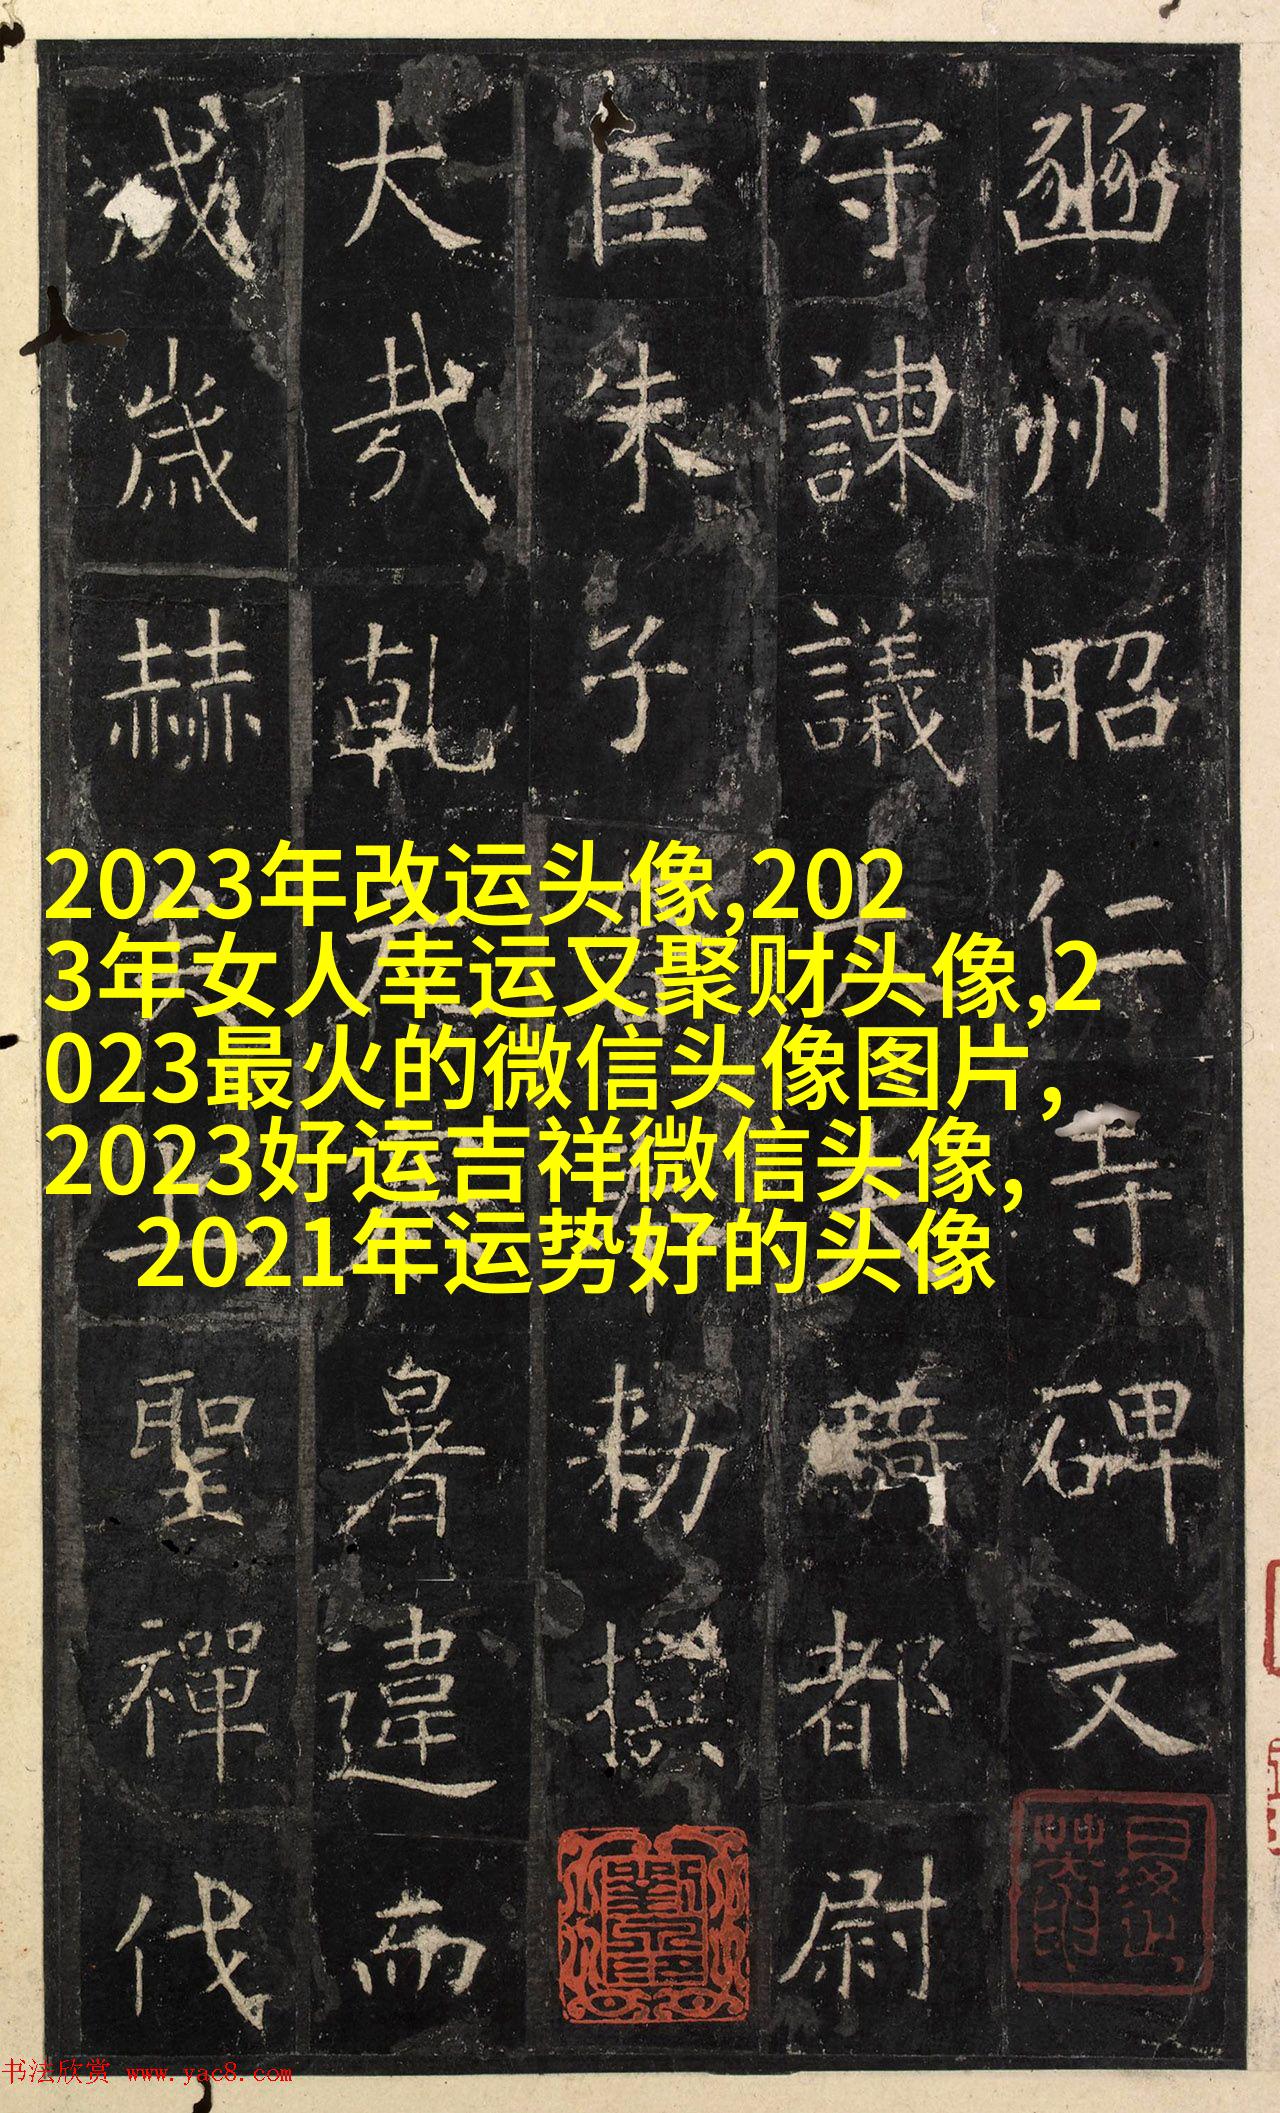 豳州昭仁寺碑文
守諫議騎都尉
臣朱子勑撰
大哉乾暑違而
成歲赫聖禪代
2023年改运头像,202
3年女人幸运又聚财头像,2
023最火的微信头像图片,
2023好运吉祥微信头像,
2021年运势好的头像
书法欣赏 www.yac8.com